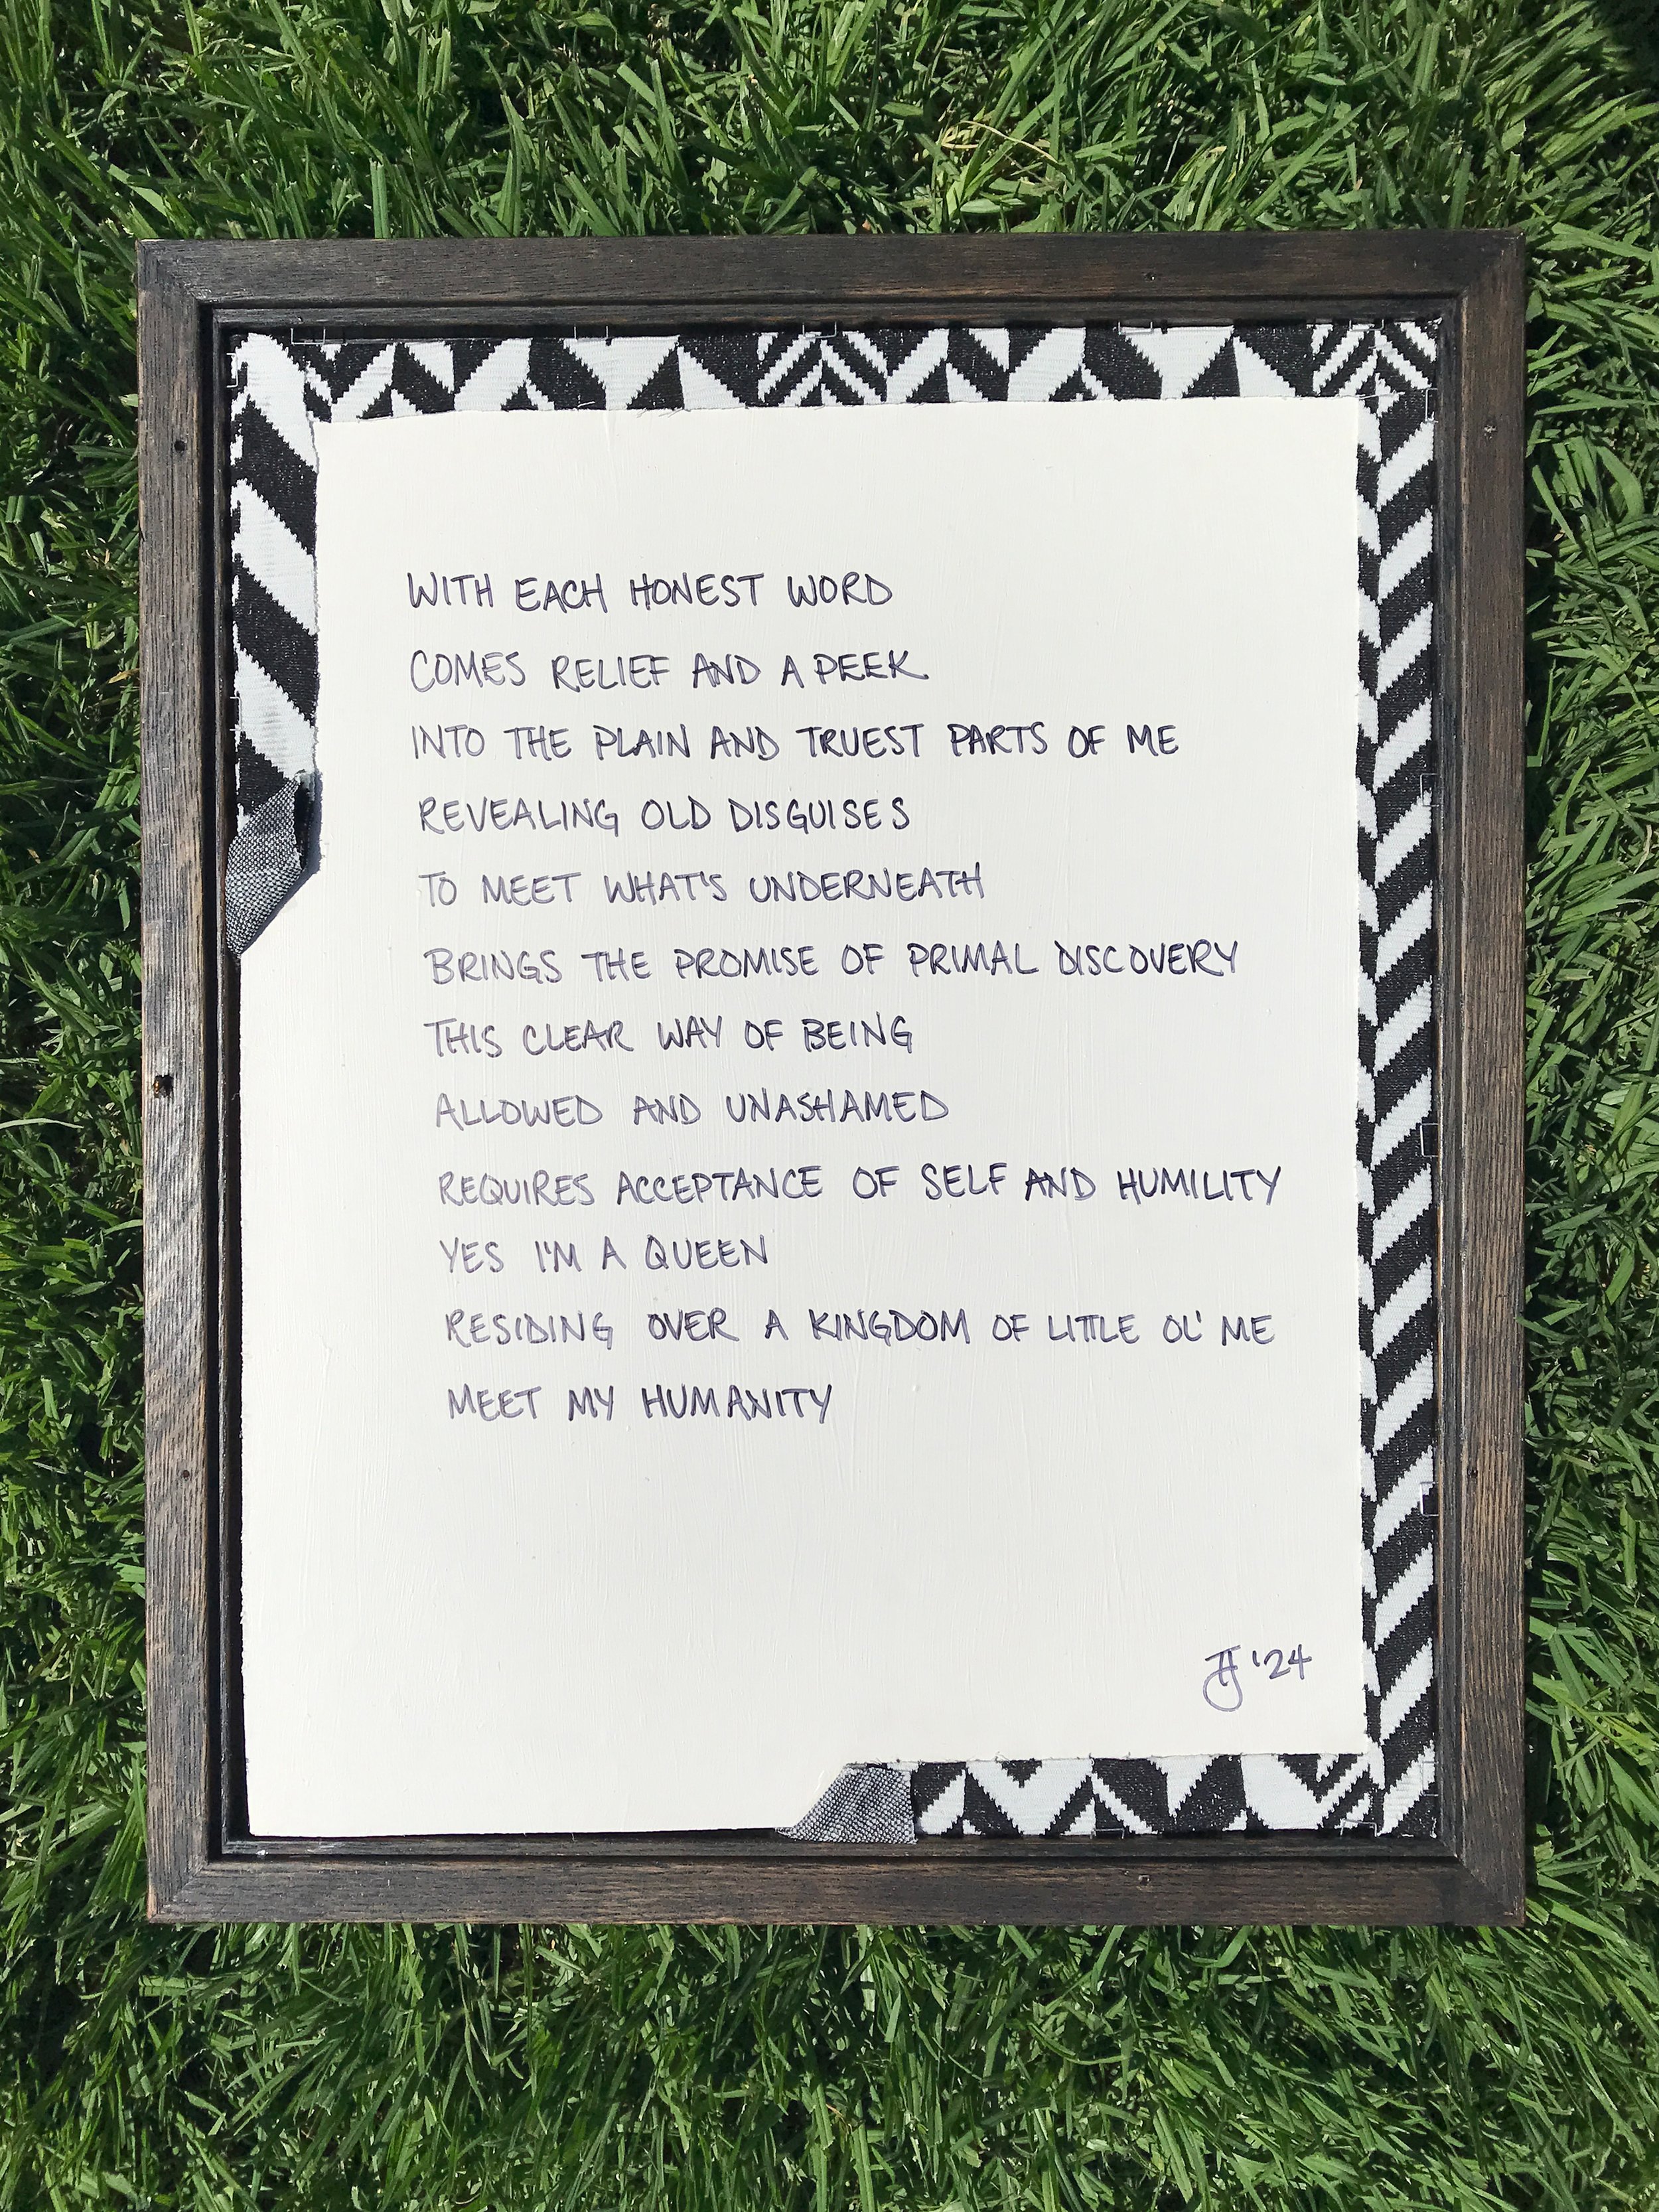 WITH EACH HONEST WORD
COMES RELIEF AND A PEEK
INTO THE PLAIN AND TRUEST PARTS OF ME
REVEALING OLD DISGUISES
TO MEET WHAT'S UNDERNEATH
BRINGS THE PROMISE OF PRIMAL DISCOVERY
THIS CLEAR WAY OF BEING
ALLOWED AND UNASHAMED
REQUIRES ACCEPTANCE OF SELF AND HUMILITY
YES I'M A QUEEN
RESIDING OVER A KINGDOM OF LITTLE OL' ME
MEET MY HUMANITY
'24